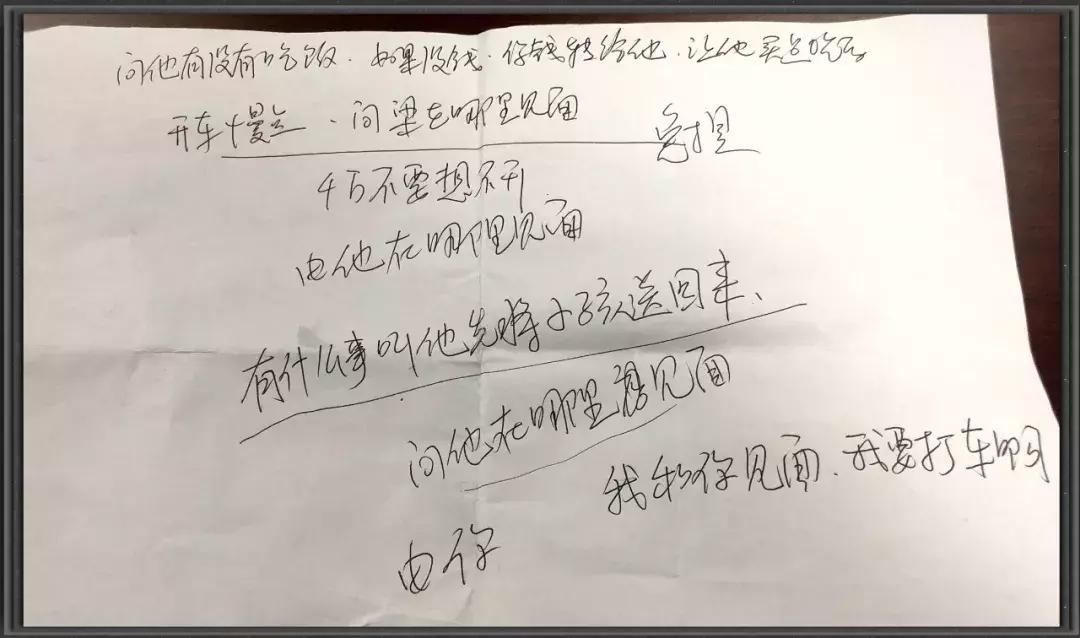 问他有没有吃饭.如果没钱.你钱转给他.让他买点吃的
开车慢点、问梁在哪里见面
千万不要想不开
由他在哪里见面
有什么事叫他先将小孩送回来、
问他在哪里见面
我和你见面.我要打车
由你